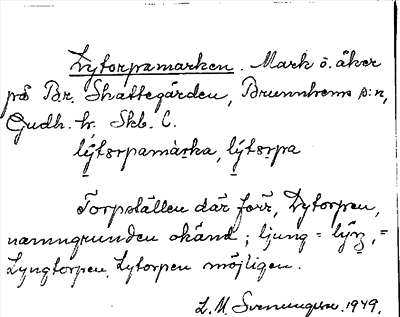 Lytorpamarken. Mark o. åker
på Br. Skattegården, Brunnhems s:n,
Gudh. hr. Skb. l.
lýtorpamàrka, lýtorpa
Torpställen där förr, Lytorpen,
namngrunden okänd; ljung = lýŋ, =
Lyngtorpen, Lytorpen möjligen.
L. M. Svenungsson 1949.